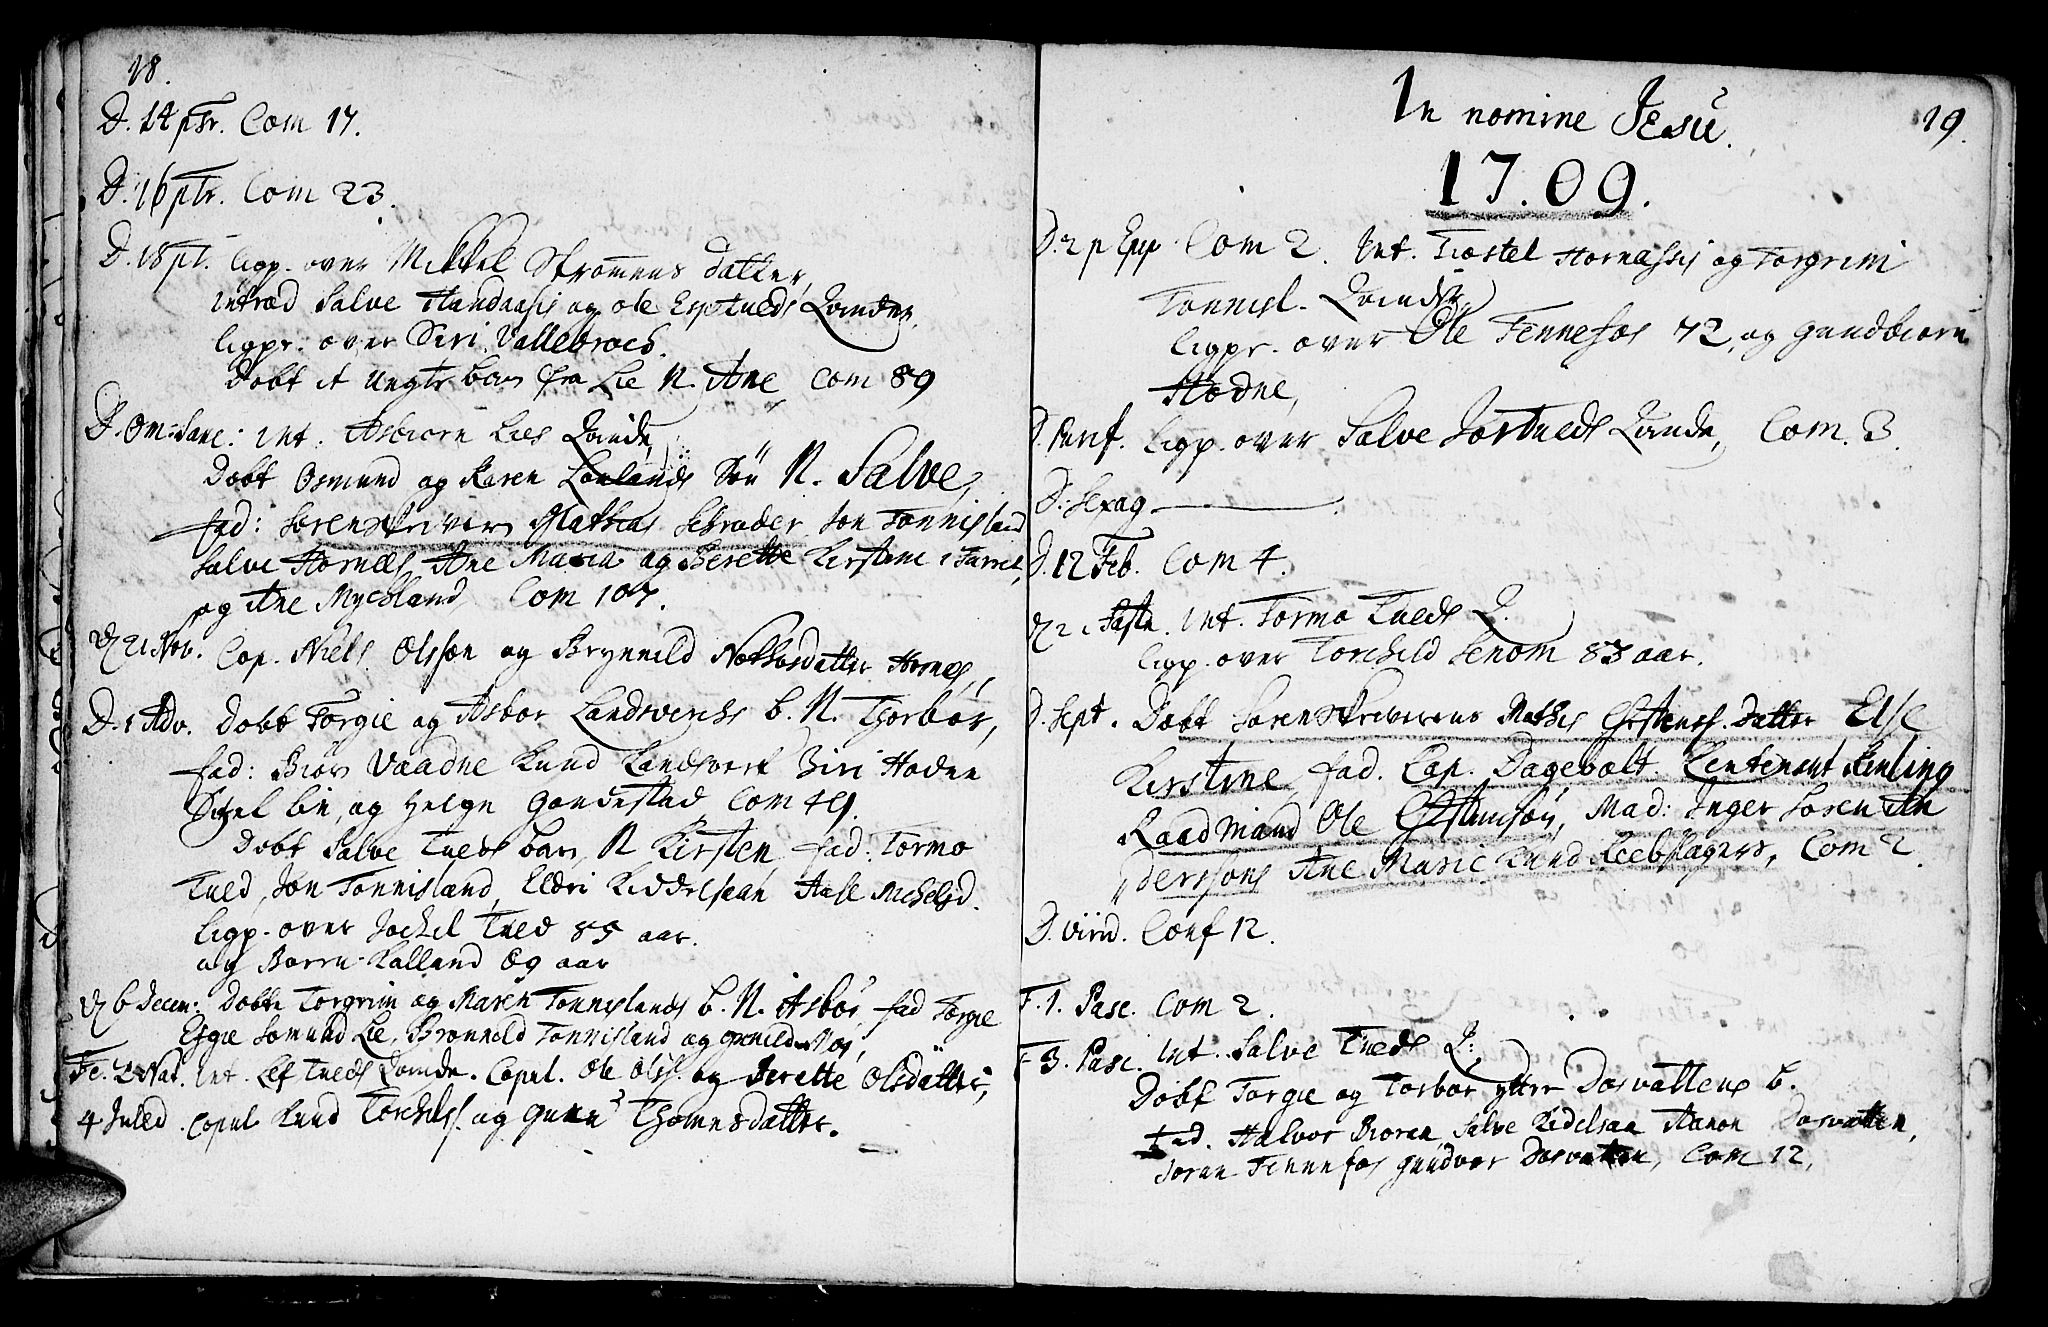 18.
D. 14 ptr. Com 17.
D. 16 ptr. Com 23.
D. 18 pt. ligp. over Mikkel Strømens datter,
introd Salve Handaasis og Ole Espetveds Qvinder,
ligpr. over Siri Vallebroes.
Døbt it Uegte barn fra Lie N. Ane, Com 89
D. Om: Sanc: int. Asbiørn Lies Qvinde,
Døbt Osmund og Karen Lonlands Søn N. Salve,
fad: Sorenskriveren Mathias Schrøder Jon Tonnisland
Salve Hornes, Ane Maria og Berette Kirstine i
og Ane Mychland, Com 107.
21 Nov. Cop. Niels Olssøn og Brynnild Hornes,
D. 1 Adv. Døbt Torgie og Asbor Landsverchs b. N. Thorbør,
fad: Biør Vaadne Knud Landsverk Biri Hodne
Sigel Lin, og Helge Gondestad Com 49.
Døbt Salve Tveds barn, N Kirsten, fad: Tormo
Tved, Jon Tonnisland, Eldri Kiddelsaan Aase Michelsd.
Ligp. over Jochel Tved 85 aar.
og Barru Kalland 69 aar
6 Decem: Døbte Torgrim og Maren Tonneslands b. N. Asbør, fad Torgie
Esgie Lie, Brønneld Tonnisland og
Fe. 2 Nat. int. Lef Tveds Qvinde. Copul. Ole Olss. og Berette Olsdatter,
4 Juled. Copul Knud Torchels. og Thomesdatter.
In nomine Jesu. 19.
1709.
D. 2 p Epp Com 2. Int. Tiostel Hornessis og Torgrim
Tonnisl. Qvinder,
ligpr. over Ole Fennefos 72, og Gundbiørn
Hodne,
D. Purif. ligp. over Salve Jortveds Qvinde, Com. 3.
D. Sexag
D. 12 Feb. Com 4.
2 i Faste. int. Tormo Tveds Q.
ligp. over Torcheld Senom 83 aar.
D. Sept. Døbt Sorenskriverens Mathis Datter Else
Kirstine, fad. Cap. Dagevolt. Lieutenant
Raadmand Ole Mad: Inger Soren An
derssøns Ane Marie Knud Reebslagers, Com 2.
D. Virid. Conf 12.
F. 1. Pasc. Com 2.
F 3. Pasc. Int. Salve Tveds Q:
Døbt Torgie og Torbor ytter Dosvattens b.
fad. Halvor Bioren, Salve Kidelsaa Aanon Dosvatten,
Joran Fennefos Gundvor Dosvatten, Com 12,